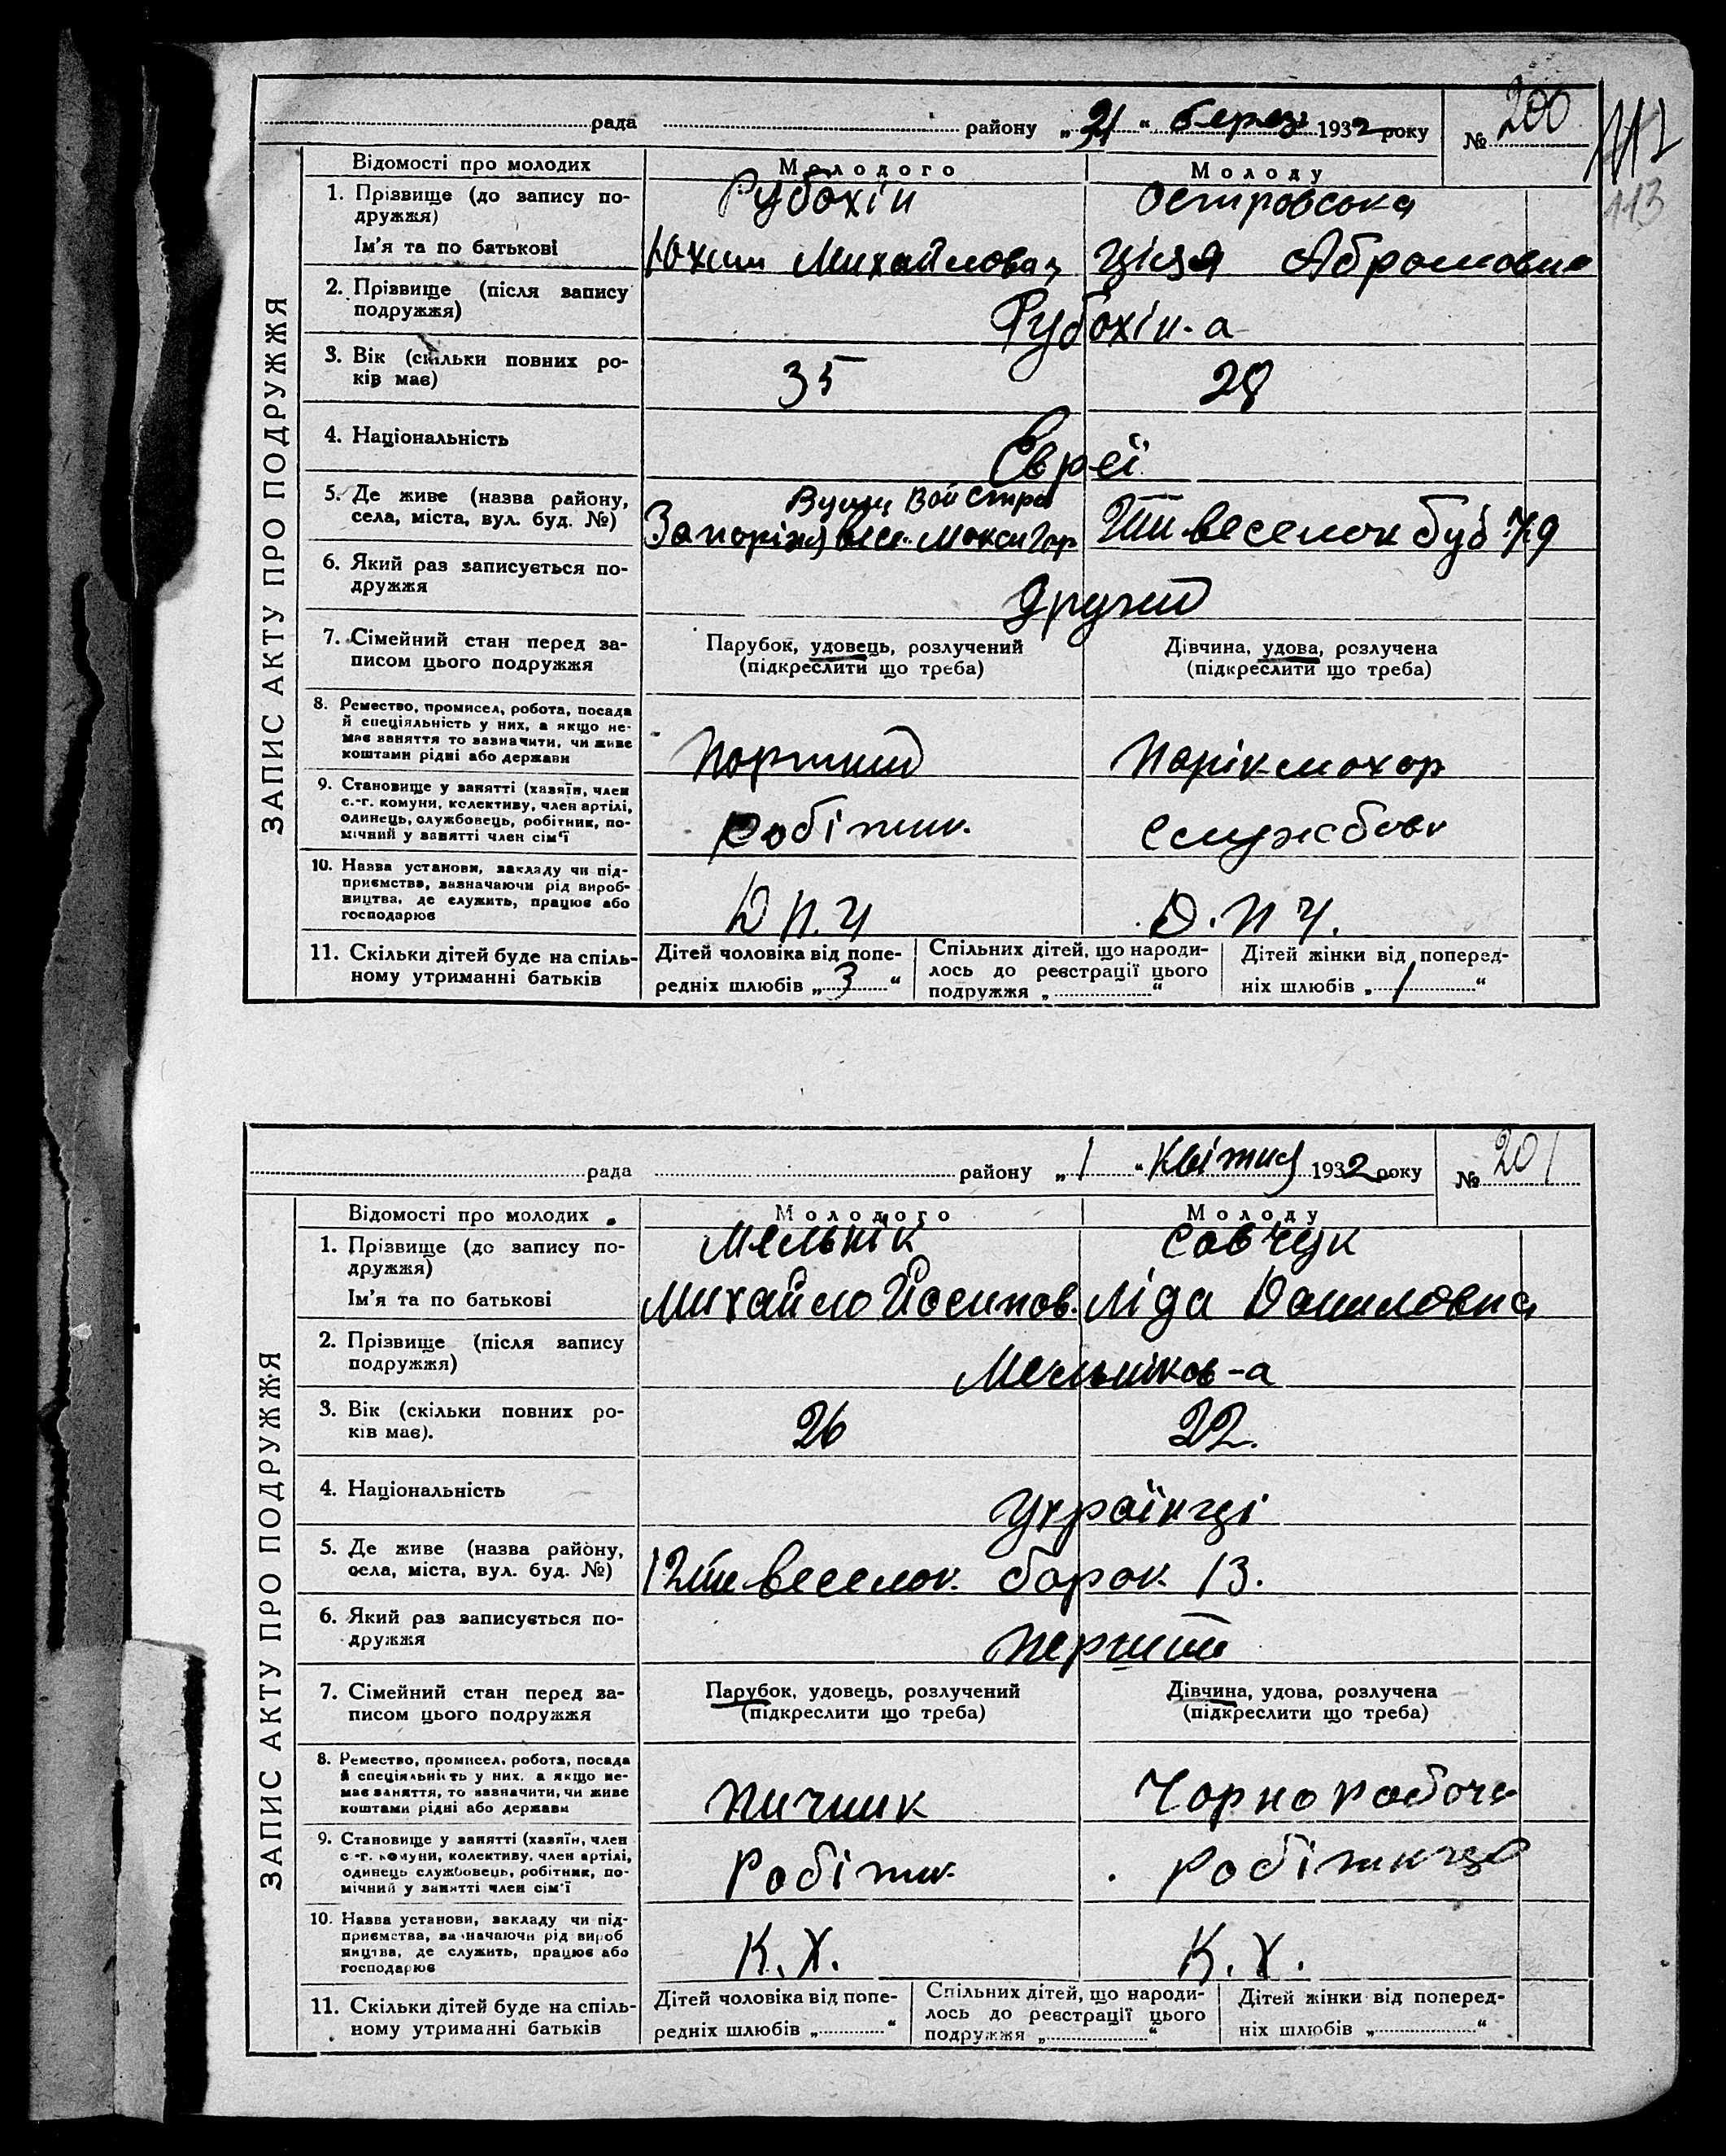 рада району „31“ березн 1932 року № 200
112
113
ЗАПИС АКТУ ПРО ПОДРУЖЖЯ
Відомості про молодих
Молодого
Молоду
1. Прізвище (до запису по-
дружжя)
Рубохін
Островська
Ім'я та по батькові
Юхим Михайлович
Ціля Абрамовна
2. Прізвище (після запису
подружжя)
Рубохін-а
3. Вік (скільки повних ро-
ків має)
35
28
4. Національність
Євреї
5. Де живе (назва району,
села, міста, вул. буд. №)
Запоріжя
веселон буд 79
6. Який раз записується по-
дружжя
другий
7. Сімейний стан перед за-
писом цього подружжя
Парубок, удовець, розлучений
(підкреслити що треба)
Дівчина, удова, розлучена
(підкреслити що треба)
8. Ремество, промисел, робота, посада
й спеціяльність у них, а якщо не-
має заняття то зазначити, чи живе
коштами рідні або держави
Портний
Парікмахер
9. Становище у занятті (хазяїн, член
с.-г. комуни, колективу, член артілі,
одинець, службовець, робітник, по-
мічний у занятті член сім'ї
робітник
службов
10. Назва установи, закладу чи під-
приємства, зазначаючи рід вироб-
ництва, де служить, працює або
господарює
Д.П.Ч
Д.П.Ч.
11. Скільки дітей буде на спіль-
ному утриманні батьків
Дітей чоловіка від попе-
редніх шлюбів „3“
Спільних дітей, що народи-
лось до реєстрації цього
подружжя „ “
Дітей жінки від поперед-
ніх шлюбів „1“
рада району „1“ Квітня 1932 року № 201
ЗАПИС АКТУ ПРО ПОДРУЖЖЯ
Відомості про молодих
Молодого
Молоду
1. Прізвище (до запису по-
дружжя)
Мельнік
Савчук
Ім'я та по батькові
Михайло Йосипов.
Ліда Даниловна
2. Прізвище (після запису
подружжя)
Мельніков-а
3. Вік (скільки повних ро-
ків має).
26
22.
4. Національність
Українці
5. Де живе (назва району,
села, міста, вул. буд. №)
12 веселок. барак 13.
6. Який раз записується по-
дружжя
перший
7. Сімейний стан перед за-
писом цього подружжя
Парубок, удовець, розлучений
(підкреслити що треба)
Дівчина, удова, розлучена
(підкреслити що треба)
8. Ремество, промисел, робота, посада
й спеціяльність у них, а якщо не-
має заняття, то зазначити, чи живе
коштами рідні або держави
Пичник
Чорноробоча
9. Становище у занятті (хазяїн, член
с.-г. комуни, колективу, член артілі,
одинець службовець, робітник, по-
мічний у занятті член сім'ї
Робітник
робітниця
10. Назва установи, закладу чи під-
приємства, зазначаючи рід вироб
ництва, де служить, працює або
господарює
К.Х.
К.Х.
11. Скільки дітей буде на спіль-
ному утриманні батьків
Дітей чоловіка від попе-
редніх шлюбів „ “
Спільних дітей, що народи-
лось до реєстрації цього
подружжя „ “
Дітей жінки від поперед-
ніх шлюбів „ “